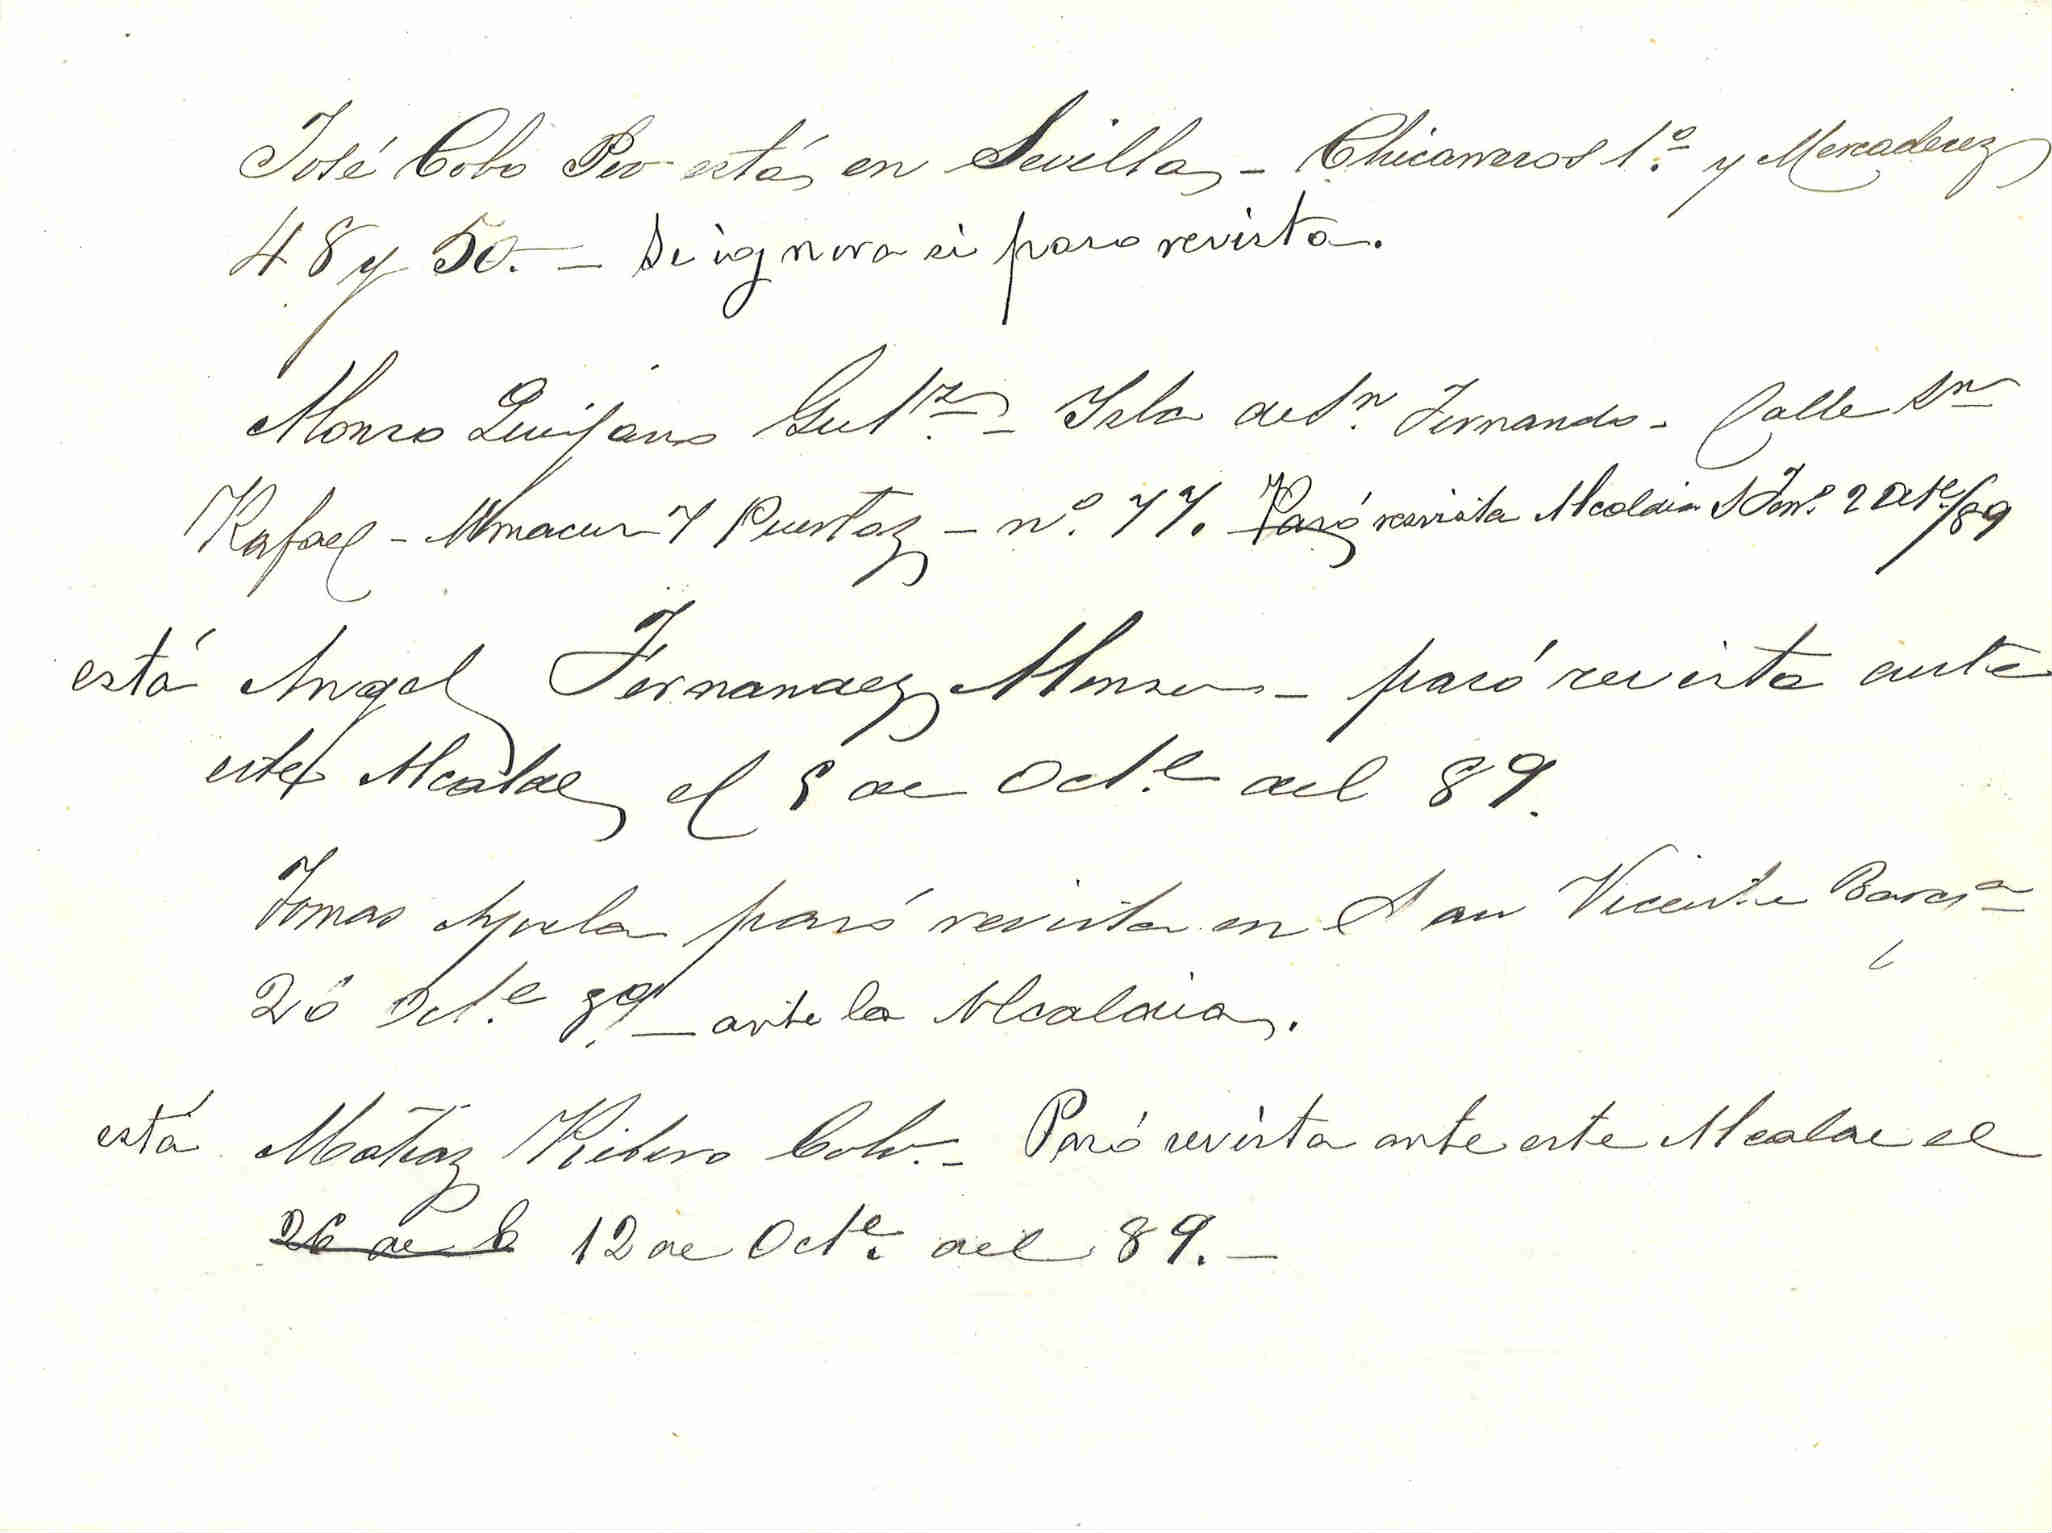 José Cobo Peo está en Sevilla - Chicarreros 1.º y Mercaderez
48 y 50. - Se ignora si paso revista.
Alonso Quijano Gut.z - Isla de Sn Fernando - Calle Sn
Rafael - 7 Puertaz - nº. 77. Pasó revista Alcaldia S Fern.º 2 Oct.e/89
está Angel Fernandez Alonso - pasó revista ante
este Alcalde el 5 de Oct.e del 89.
Tomas pasó revista en San Vicente Barq.a
20 Oct.e 89 - ante la Alcaldia.
está Matiaz Ribero Cobo. - Pasó revista ante este Alcalde el
26 de 12 de Oct.e del 89. -